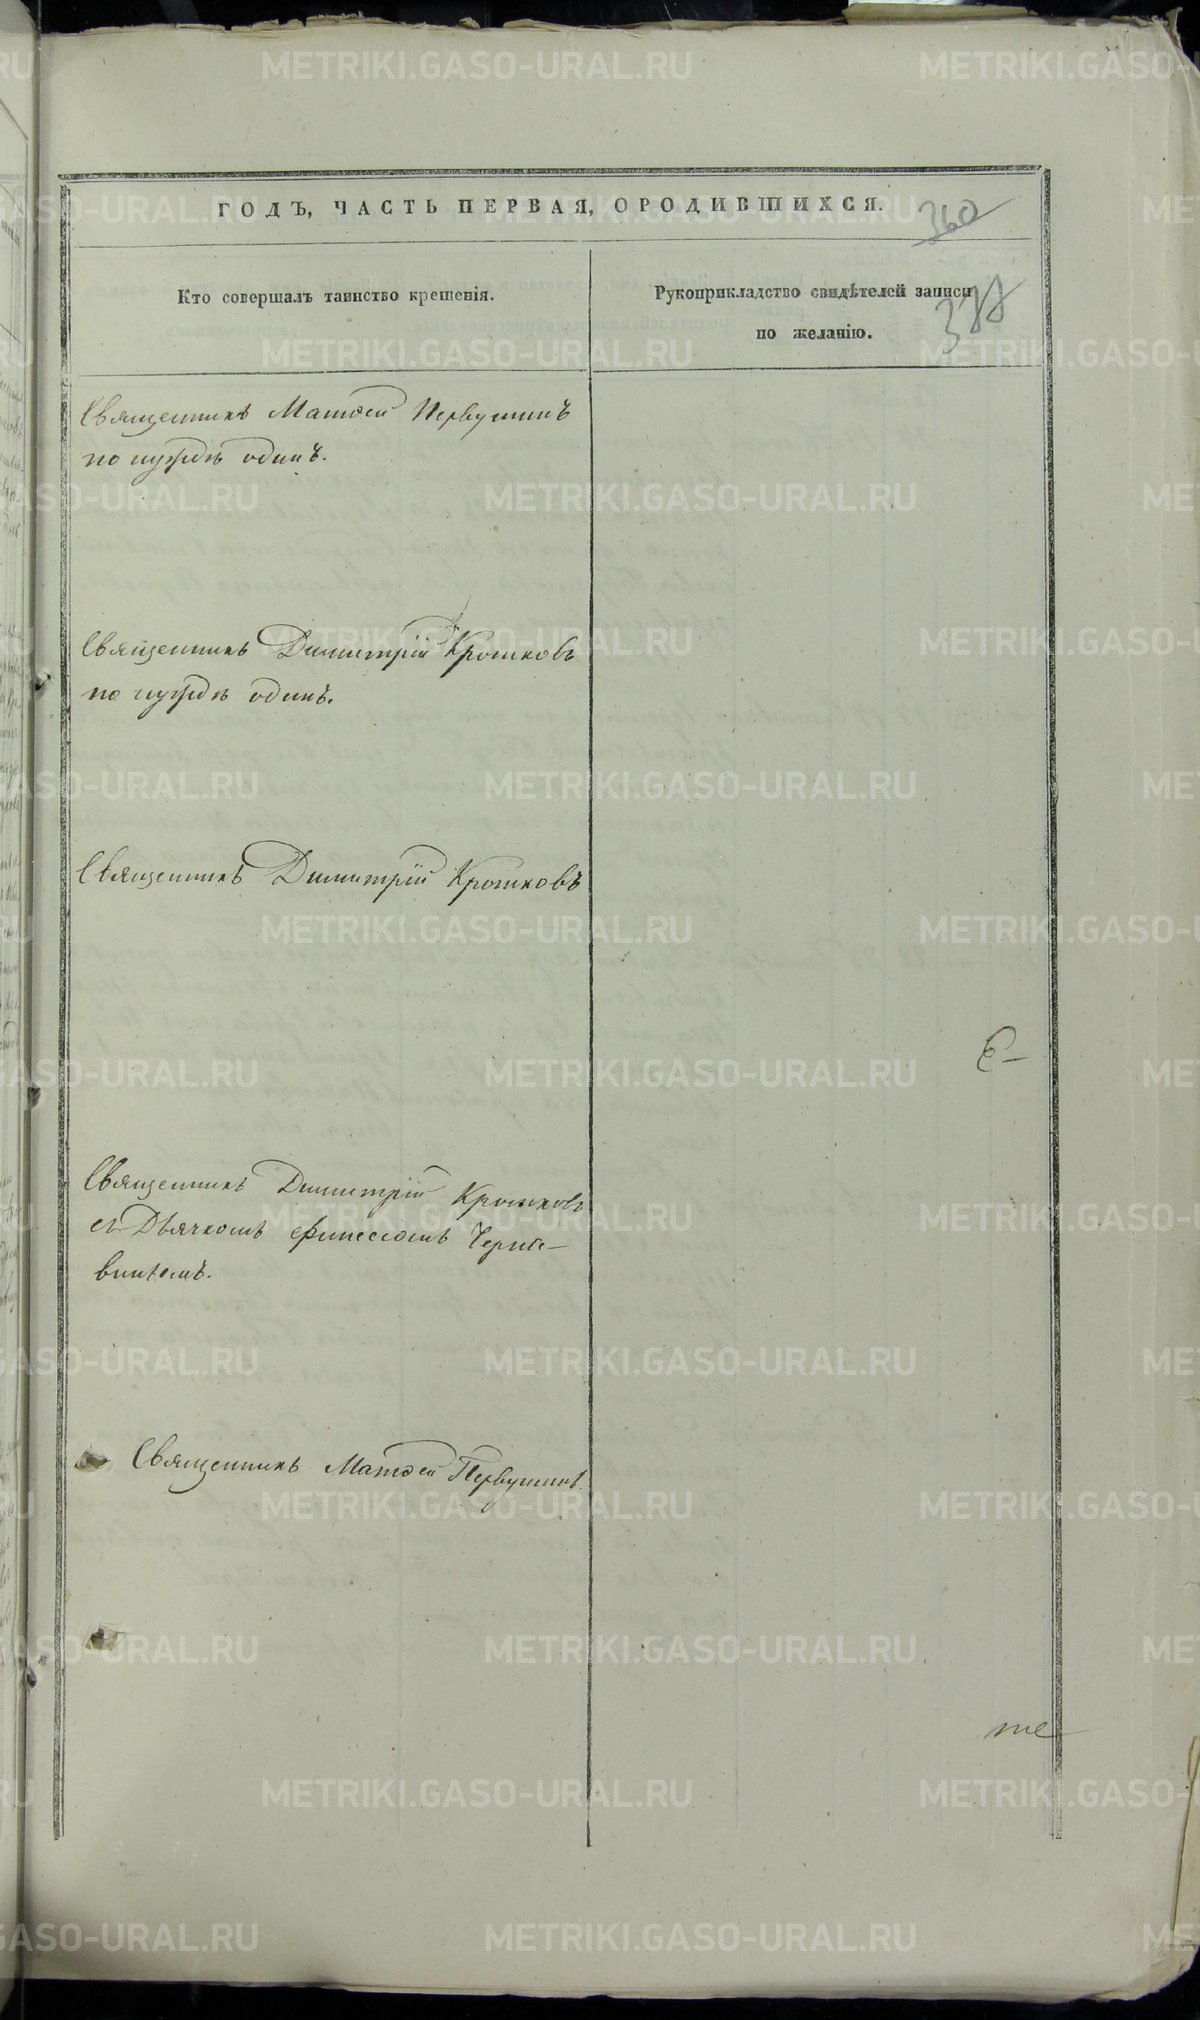 ГОДЪ, ЧАСТЬ ПЕРВАЯ, ОРОДИВШИХСЯ.
360
Кто совершалъ таинство крещенія.
Рукоприкладство свидѣтелей записи
по желанію.
Священникъ Матѳей Первушинъ
по нуждѣ одинъ.
Священникъ Димитрій Крошковъ
по нуждѣ одинъ.
Священникъ Димитрій Крошковъ
Священникъ Димитрій Крошковъ
съ Дьячкомъ
Священникъ Матѳей Первушинъ.
те
METRIKI.GASO-URAL.RU